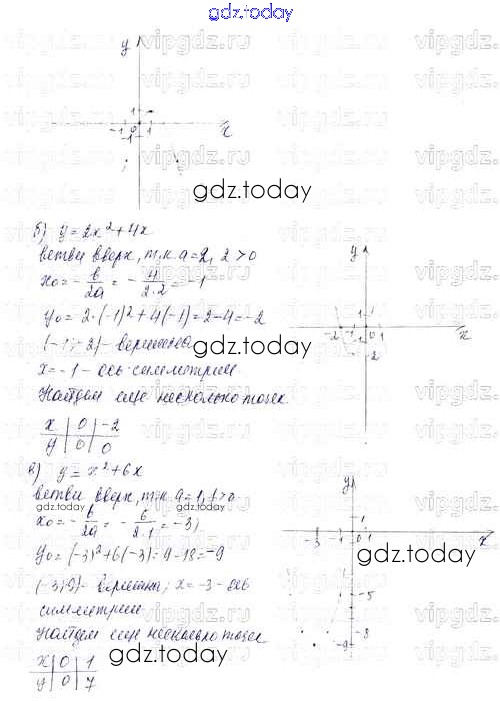 gdz.today
vipgdz.ru
y
1
-1 0 1 x
-1
gdz.today
б) y = 2x² + 4x
ветви вверх, т.к. a = 2, 2 > 0
x₀ = -b/2a = -4/2·2 = -1
y₀ = 2·(-1)² + 4(-1) = 2 - 4 = -2
(-1; -2) - вершина
x = -1 - ось симметрии
Найдём еще несколько точек
x | 0 | -2
y | 0 | 0
y
1
-2 -1 0 1 x
-1
-2
gdz.today
в) y = x² + 6x
ветви вверх, т.к. a = 1, 1 > 0
x₀ = -b/2a = -6/2·1 = -3
y₀ = (-3)² + 6(-3) = 9 - 18 = -9
(-3; 9) - вершина; x = -3 - ось
симметрии
Найдем еще несколько точек
x | 0 | 1
y | 0 | 7
y
1
-3 -1 0 1 x
-5
-8
-9
gdz.today
gdz.today
gdz.today